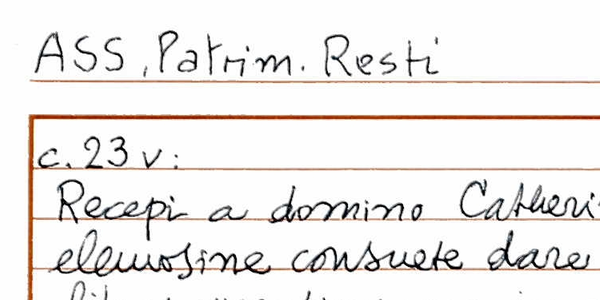 ASS, Patrim. Resti
c. 23 v:
Recepi a domino Catheri
elemosine consuete dare